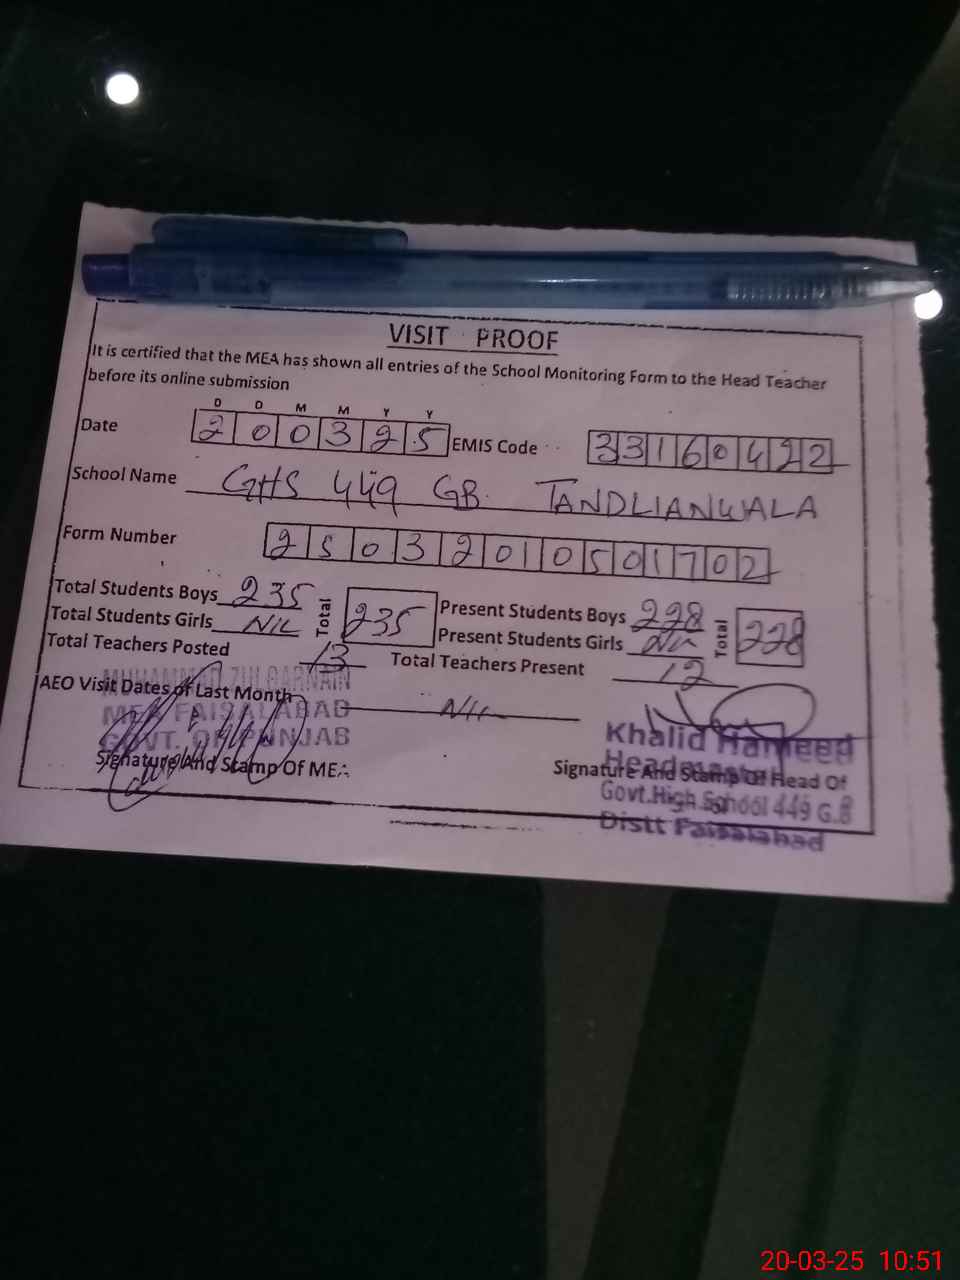 VISIT PROOF
It is certified that the MEA has shown all entries of the School Monitoring Form to the Head Teacher
before its online submission
D D M M Y Y
Date 2 0 0 3 2 5 EMIS Code 3 3 1 6 0 4 2 2
School Name GHS 449 GB. TANDLIANWALA
Form Number 2 5 0 3 2 0 1 0 5 0 1 7 0 2
Total Students Boys 235 Total 235 Present Students Boys 228 Total 228
Total Students Girls Nil Present Students Girls Nil
Total Teachers Posted 13 Total Teachers Present 12
MUHAMMAD ZULQARNAIN
AEO Visit Dates of Last Month Nil
MEA FAISALABAD
GOVT. OF PUNJAB
Signature And Stamp Of MEA
Khalid Hameed
Headmaster
Signature And Stamp Of Head Of
Govt.High School 449 G.B
Distt Faisalabad
20-03-25 10:51